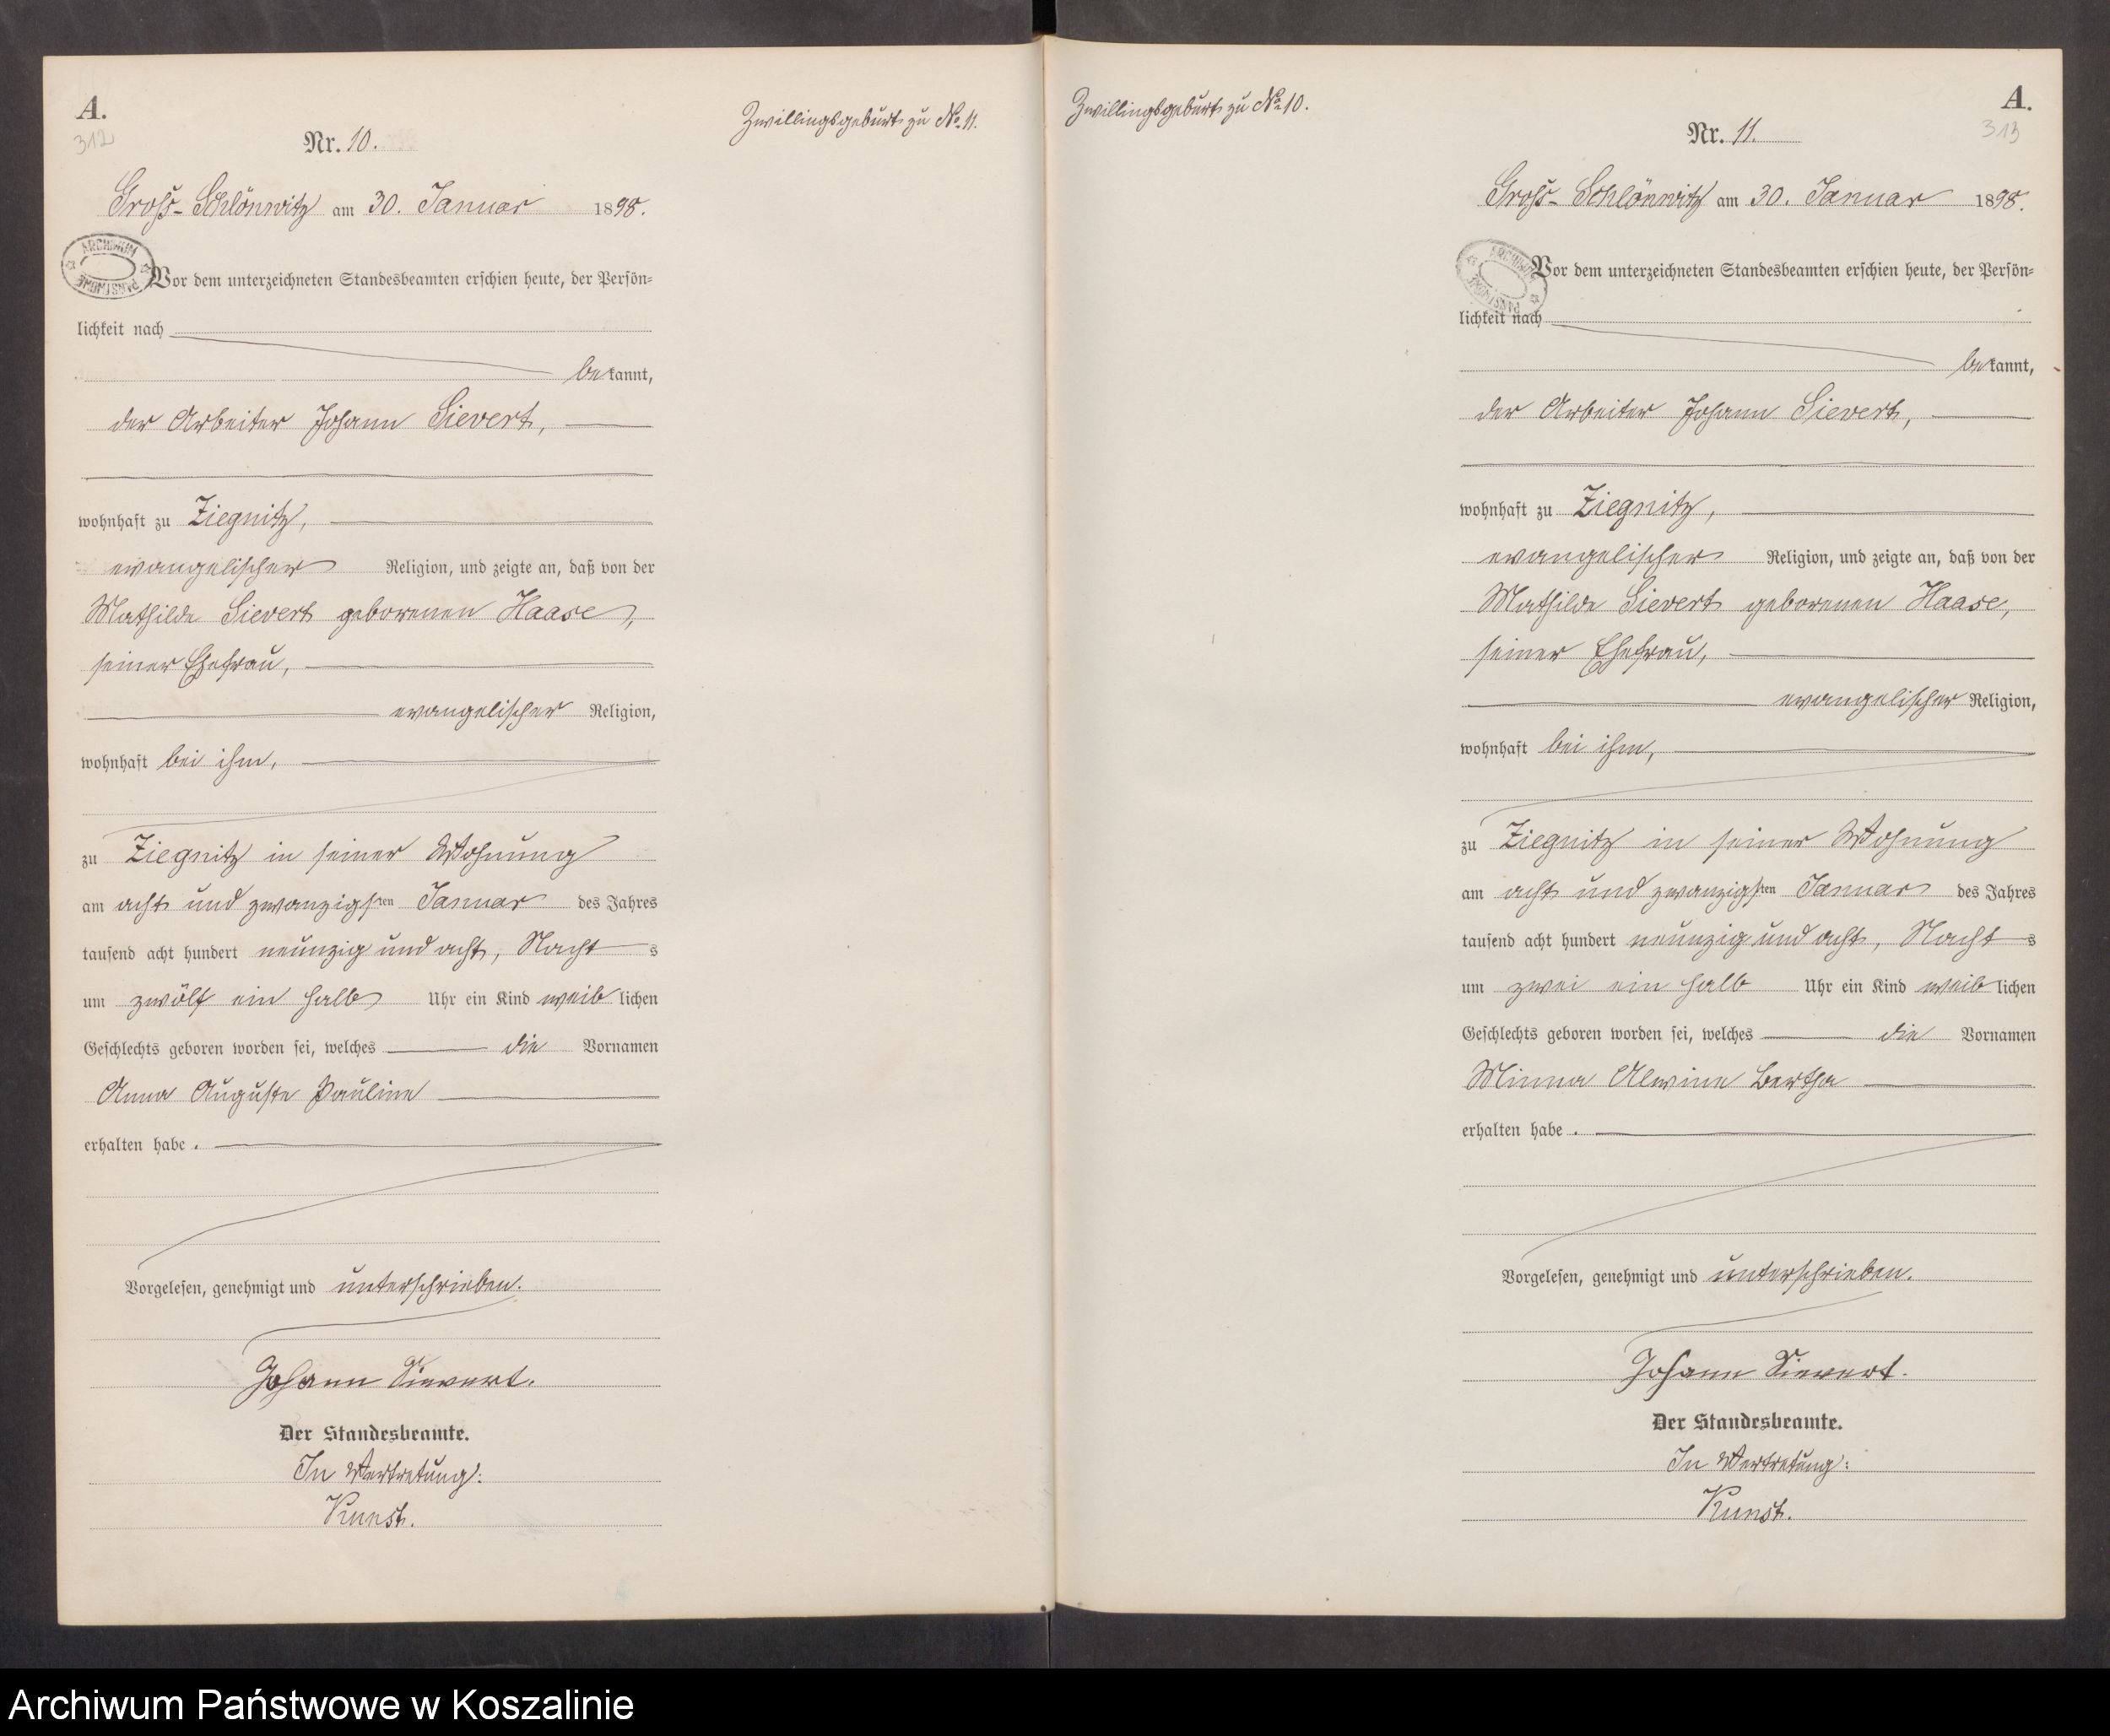 A.
312
Nr. 10.
Zwillingsgeburt zu No. 11.
Groß-Schlönwitz am 30. Januar 1898.
ARCHIWUM PAŃSTWOWE
Vor dem unterzeichneten Standesbeamten erschien heute, der Persön-
lichkeit nach
bekannt,
der Arbeiter Johann Sievert,
wohnhaft zu Ziegnitz,
evangelischer Religion, und zeigte an, daß von der
Mathilde Sievert geborenen Haase,
seiner Ehefrau,
evangelischer Religion,
wohnhaft bei ihm,
zu Ziegnitz in seiner Wohnung
am acht und zwanzigsten Januar des Jahres
tausend acht hundert neunzig und acht, Nachts
um zwölf ein halb Uhr ein Kind weiblichen
Geschlechts geboren worden sei, welches die Vornamen
Anna Auguste Pauline
erhalten habe.
Vorgelesen, genehmigt und unterschrieben.
Johann Sievert.
Der Standesbeamte.
In Vertretung:
Kunst.
Zwillingsgeburt zu No. 10.
A.
313
Nr. 11.
Groß-Schlönwitz am 30. Januar 1898.
ARCHIWUM PAŃSTWOWE
Vor dem unterzeichneten Standesbeamten erschien heute, der Persön-
lichkeit nach
bekannt,
der Arbeiter Johann Sievert,
wohnhaft zu Ziegnitz,
evangelischer Religion, und zeigte an, daß von der
Mathilde Sievert geborenen Haase,
seiner Ehefrau,
evangelischer Religion,
wohnhaft bei ihm,
zu Ziegnitz in seiner Wohnung
am acht und zwanzigsten Januar des Jahres
tausend acht hundert neunzig und acht, Nachts
um zwei ein halb Uhr ein Kind weiblichen
Geschlechts geboren worden sei, welches die Vornamen
Minna Alwine Bertha
erhalten habe.
Vorgelesen, genehmigt und unterschrieben.
Johann Sievert.
Der Standesbeamte.
In Vertretung:
Kunst.
Archiwum Państwowe w Koszalinie